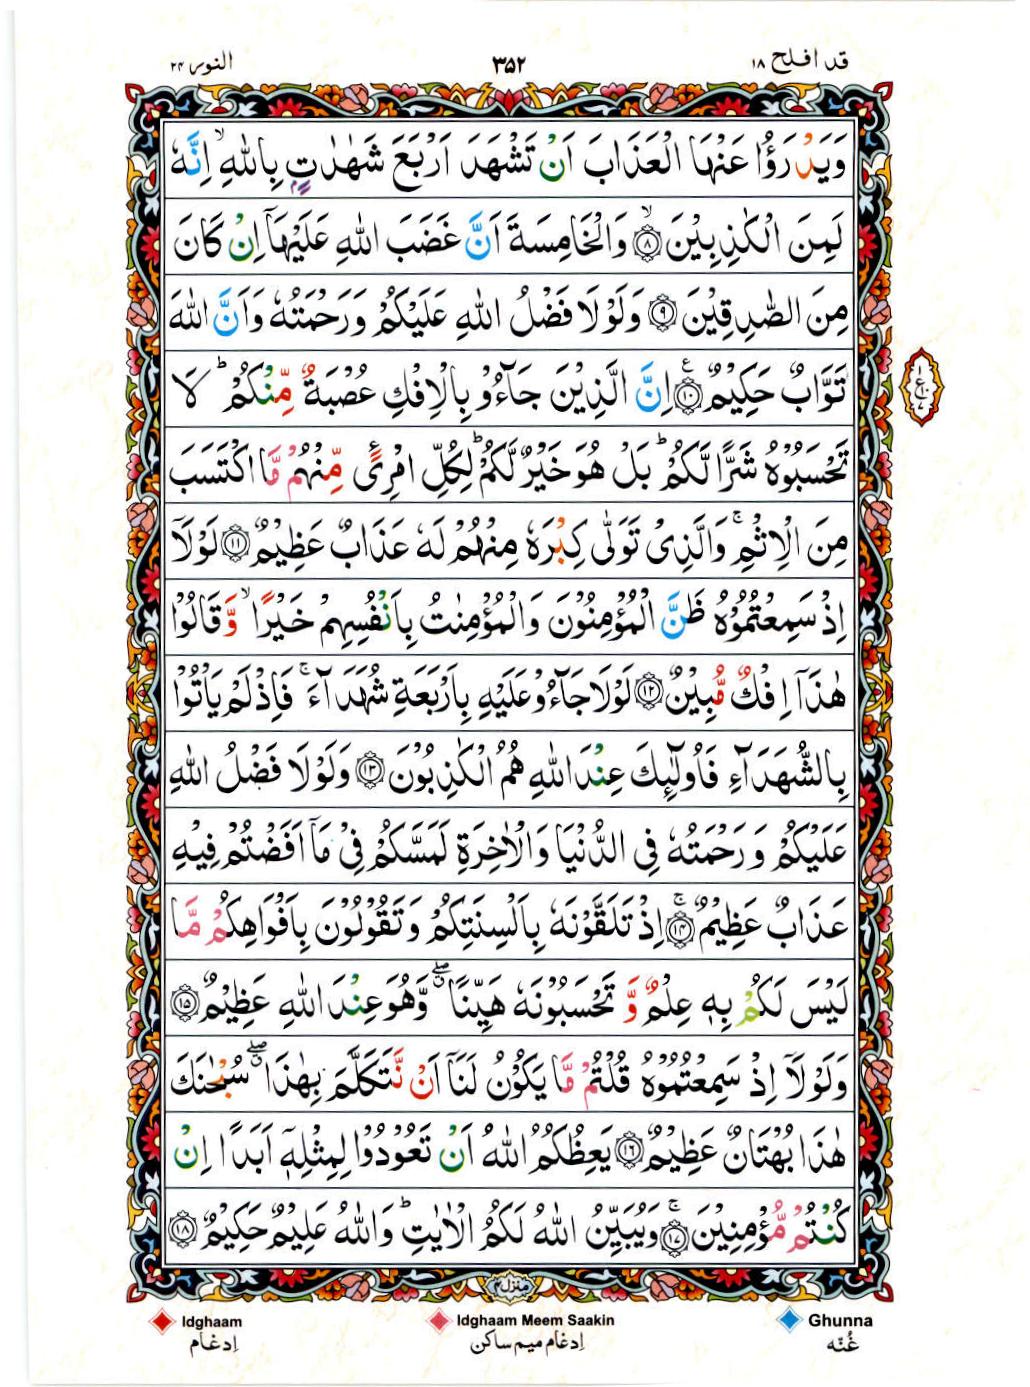 قد افلح ١٨
٣٥٢
النور ٢٤
وَيَدْرَؤُا عَنْهَا الْعَذَابَ اَنْ تَشْهَدَ اَرْبَعَ شَهٰدٰتٍۭ بِاللّٰهِۙ اِنَّهٗ
لَمِنَ الْكٰذِبِيْنَ ﴿٨﴾ۙ وَالْخَامِسَةَ اَنَّ غَضَبَ اللّٰهِ عَلَيْهَاۤ اِنْ كَانَ
مِنَ الصّٰدِقِيْنَ ﴿٩﴾ وَلَوْلَا فَضْلُ اللّٰهِ عَلَيْكُمْ وَرَحْمَتُهٗ وَاَنَّ اللّٰهَ
تَوَّابٌ حَكِيْمٌ ﴿١٠﴾ اِنَّ الَّذِيْنَ جَآءُوْ بِالْاِفْكِ عُصْبَةٌ مِّنْكُمْؕ لَا
تَحْسَبُوْهُ شَرًّا لَّكُمْؕ بَلْ هُوَ خَيْرٌ لَّكُمْؕ لِكُلِّ امْرِئٍ مِّنْهُمْ مَّا اكْتَسَبَ
مِنَ الْاِثْمِۚ وَالَّذِىْ تَوَلّٰى كِبْرَهٗ مِنْهُمْ لَهٗ عَذَابٌ عَظِيْمٌ ﴿١١﴾ لَوْلَاۤ
اِذْ سَمِعْتُمُوْهُ ظَنَّ الْمُؤْمِنُوْنَ وَالْمُؤْمِنٰتُ بِاَنْفُسِهِمْ خَيْرًاۙ وَّقَالُوْا
هٰذَاۤ اِفْكٌ مُّبِيْنٌ ﴿١٢﴾ لَوْلَا جَآءُوْ عَلَيْهِ بِاَرْبَعَةِ شُهَدَآءَۚ فَاِذْ لَمْ يَاْتُوْا
بِالشُّهَدَآءِ فَاُولٰٓئِكَ عِنْدَ اللّٰهِ هُمُ الْكٰذِبُوْنَ ﴿١٣﴾ وَلَوْلَا فَضْلُ اللّٰهِ
عَلَيْكُمْ وَرَحْمَتُهٗ فِى الدُّنْيَا وَالْاٰخِرَةِ لَمَسَّكُمْ فِىْ مَاۤ اَفَضْتُمْ فِيْهِ
عَذَابٌ عَظِيْمٌ ﴿١٤﴾ۚ اِذْ تَلَقَّوْنَهٗ بِاَلْسِنَتِكُمْ وَتَقُوْلُوْنَ بِاَفْوَاهِكُمْ مَّا
لَيْسَ لَكُمْ بِهٖ عِلْمٌ وَّ تَحْسَبُوْنَهٗ هَيِّنًاۖ وَّهُوَ عِنْدَ اللّٰهِ عَظِيْمٌ ﴿١٥﴾
وَلَوْلَاۤ اِذْ سَمِعْتُمُوْهُ قُلْتُمْ مَّا يَكُوْنُ لَنَاۤ اَنْ نَّتَكَلَّمَ بِهٰذَاۖ سُبْحٰنَكَ
هٰذَا بُهْتَانٌ عَظِيْمٌ ﴿١٦﴾ يَعِظُكُمُ اللّٰهُ اَنْ تَعُوْدُوْا لِمِثْلِهٖۤ اَبَدًا اِنْ
كُنْتُمْ مُّؤْمِنِيْنَ ﴿١٧﴾ۚ وَيُبَيِّنُ اللّٰهُ لَكُمُ الْاٰيٰتِؕ وَاللّٰهُ عَلِيْمٌ حَكِيْمٌ ﴿١٨﴾
منزل ٤
Idghaam
Idghaam Meem Saakin
Ghunna
اِدغام
اِدغام میم ساکن
غُنّه